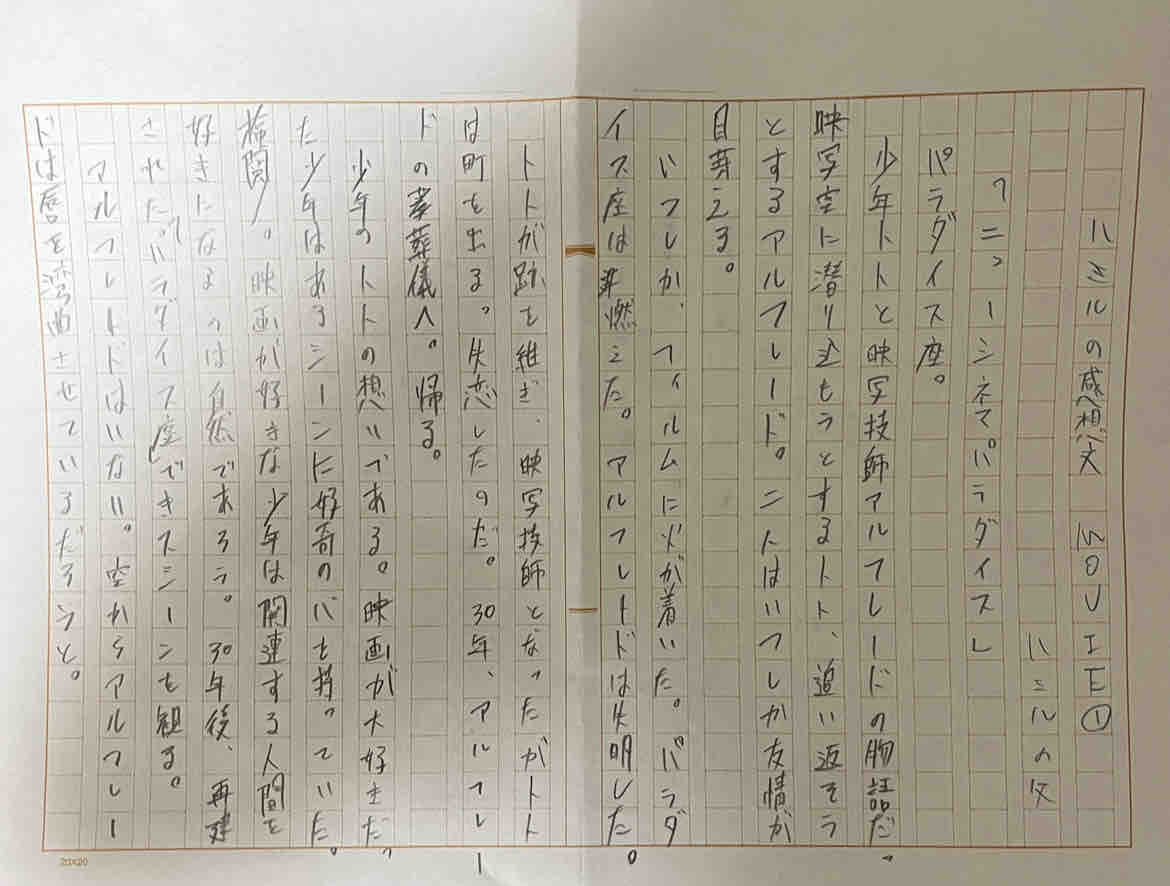 ハミルの感想文 MOVIE①
ハミルの父
「ニュー・シネマパラダイス」
パラダイス座。
少年トトと映写技師アルフレードの物語だ。
映写室に潜り込もうとするトト、追い返そう
とするアルフレード。二人はいつしか友情が
目芽える。
いつしか、フィルムに火が着いた。パラダ
イス座は燃えた。アルフレードは失明した。
トトが跡を継ぎ、映写技師となったがトト
は町を出る。失恋したのだ。30年、アルフレー
ドの葬儀へ。帰る。
少年のトトの想いである。映画が大好きだ。
た少年はあるシーンに好奇の心を持っていた。
検閲/。映画が好きな少年は関連する人間を
好きになるのは自然であろう。30年後、再建
された"パラダイス座"でキスシーンを観る。
アルフレードはいない。空からアルフレー
ドは唇を湾曲させているだろうと。
20×20